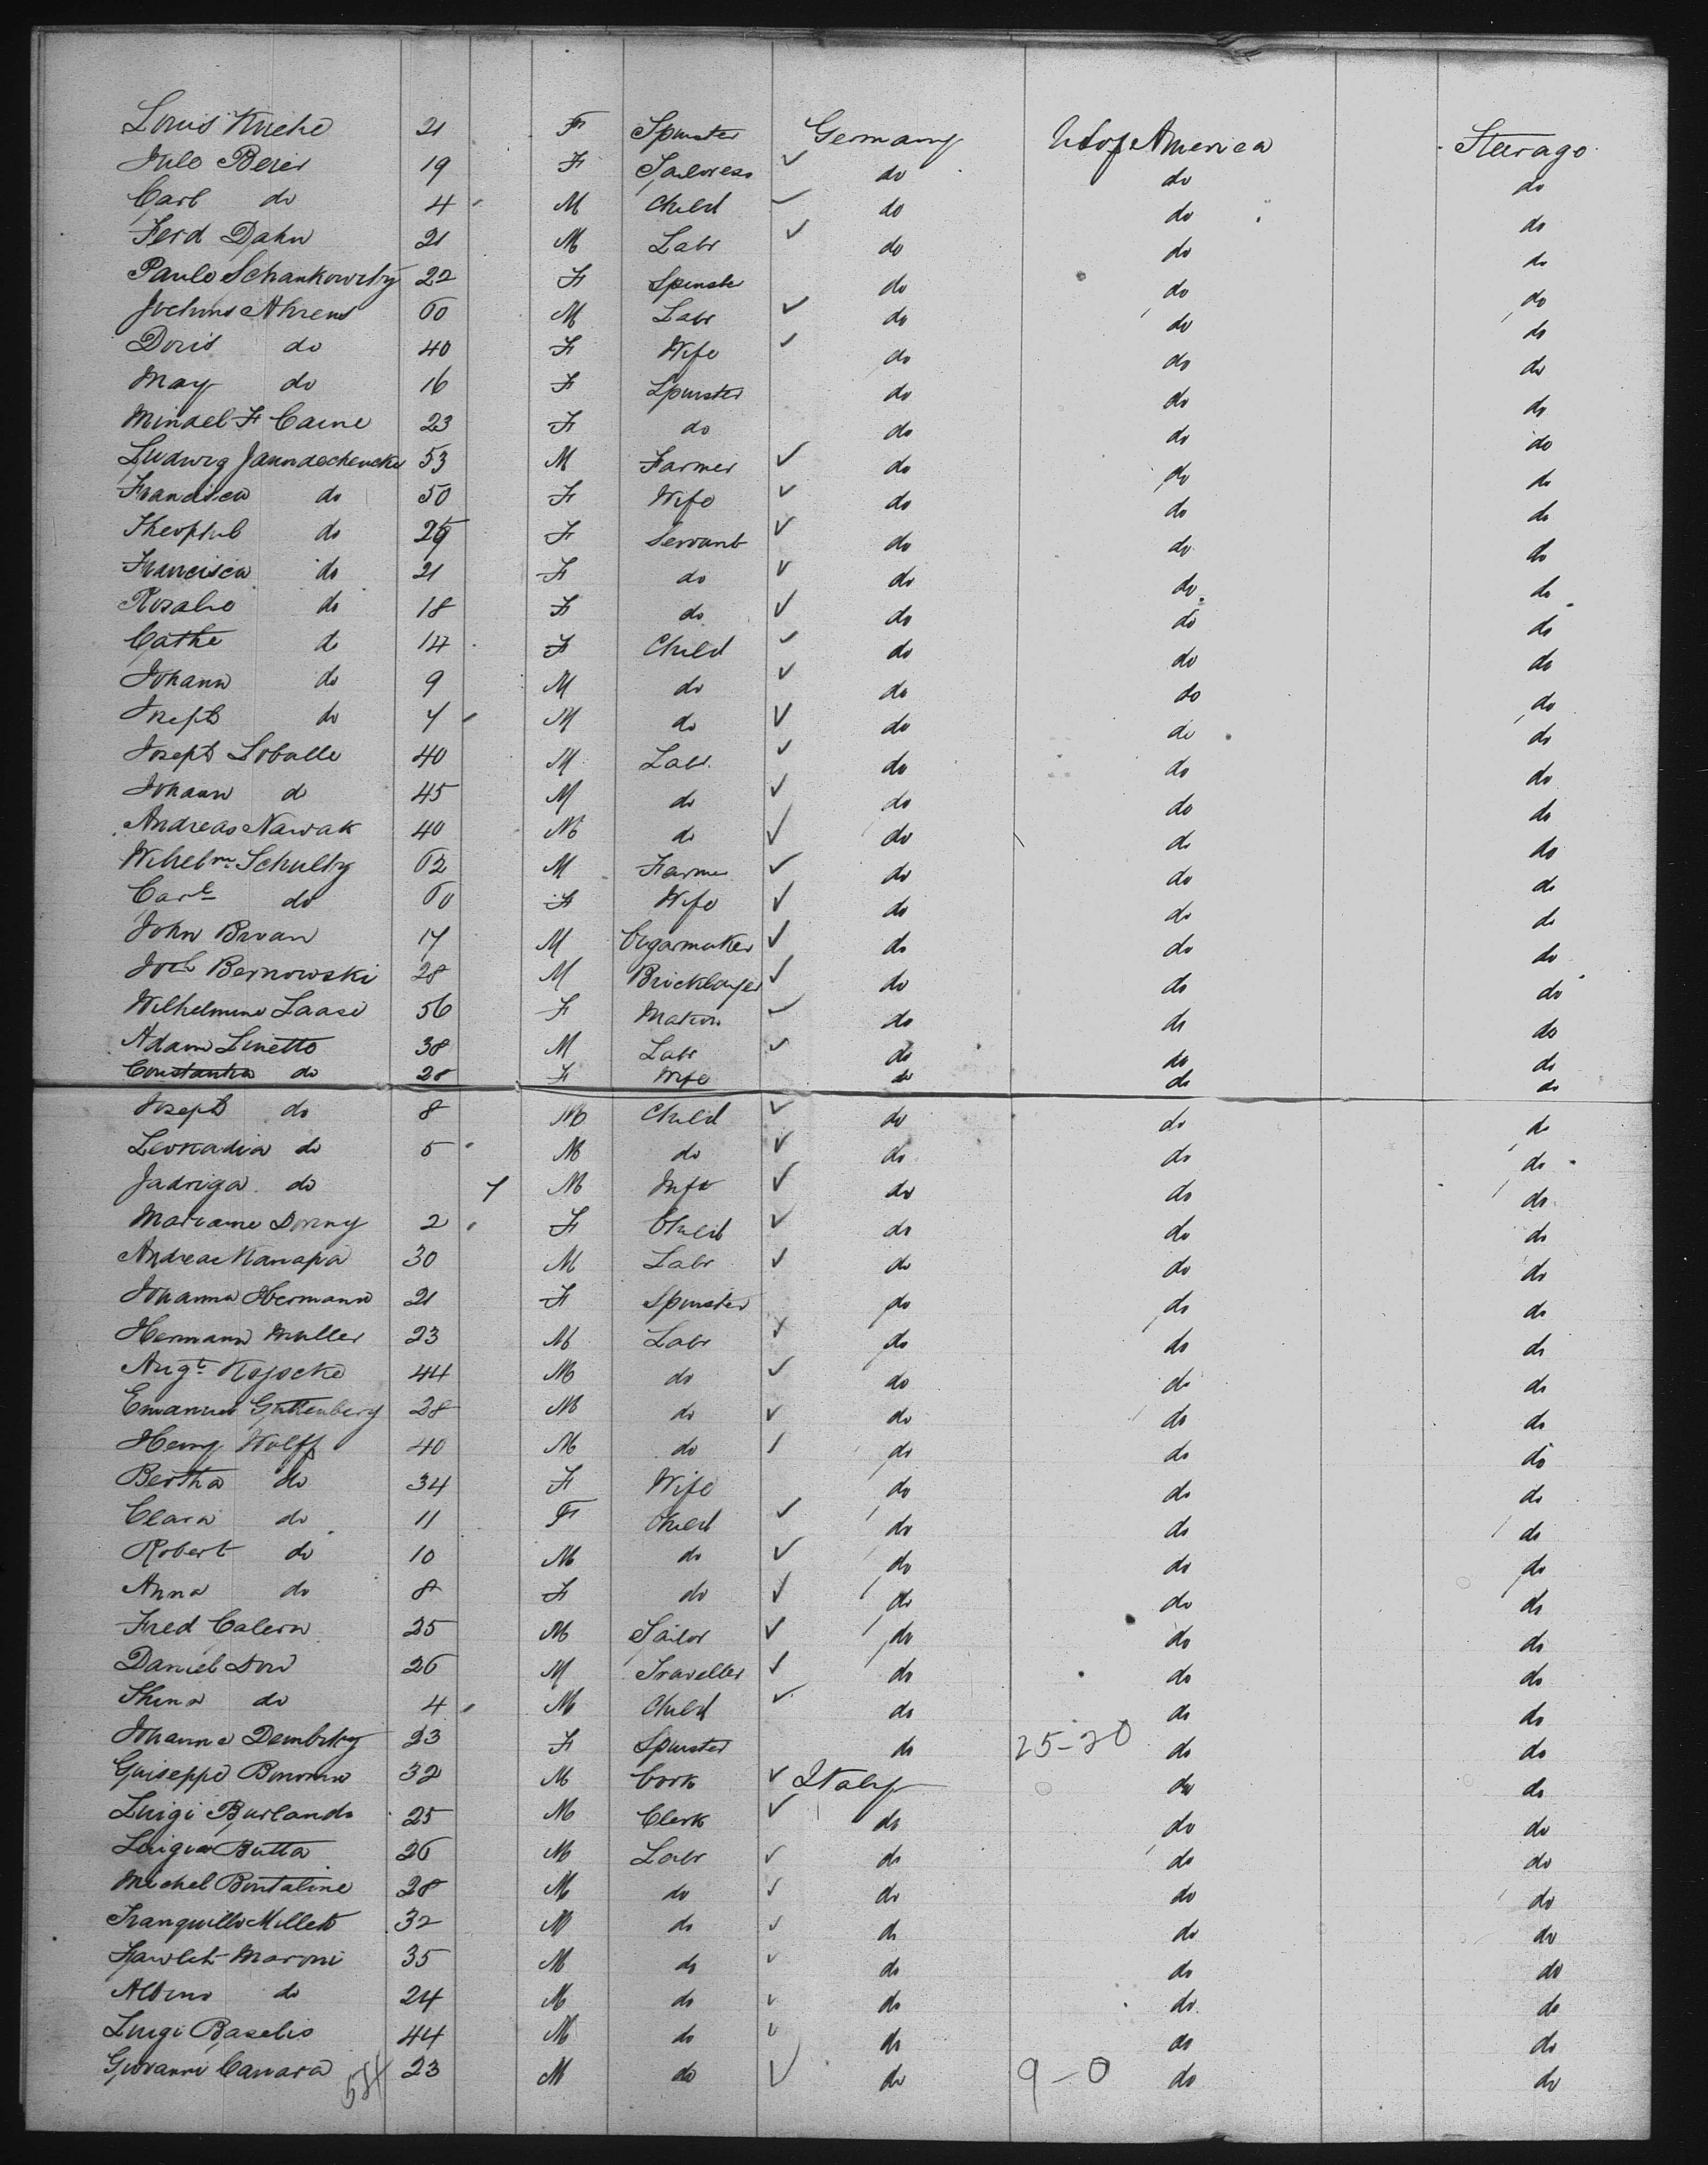 Louis Kuche 21 F Spinster Germany U S of America Steerage
Jule Beier 19 F Tailoress ✓ do do do
Carl do 4 M Child ✓ do do do
Ferd Dahn 21 M Labr ✓ do do do
Paule Schankowsky 22 F Spinstr do do do
Jochims Ahrens 60 M Labr ✓ do do do
Doris do 40 F Wife ✓ do do do
May do 16 F Spinster do do do
Mindel F Caine 23 F do do do do
Ludwig 53 M Farmer ✓ do do do
Francisca do 50 F Wife ✓ do do do
Theophil do 29 F Servant ✓ do do do
Francisca do 21 F do ✓ do do do
Rosalie do 18 F do ✓ do do do
Cathe do 14 F Child ✓ do do do
Johann do 9 M do ✓ do do do
Joseph do 7 M do ✓ do do do
Joseph Loballe 40 M Labr ✓ do do do
Johann do 45 M do ✓ do do do
Andreas Nawak 40 M do ✓ do do do
Wilhelm Schultz 62 M Farmer ✓ do do do
Carl do 60 F Wife ✓ do do do
John Bruan 17 M Cigarmaker ✓ do do do
Joch Bernowski 28 M Bricklayer ✓ do do do
Wilhelmine Laase 56 F Matron ✓ do do do
Adam Linetto 38 M Labr ✓ do do do
Constantia do 28 F Wife do do do
Joseph do 8 M Child ✓ do do do
Leokadia do 5 M do ✓ do do do
Jadriga do 7 M Inft ✓ do do do
Mariane Dorny 2 F Child ✓ do do do
Andreae Kanapa 30 M Labr ✓ do do do
Johanna Hermann 21 F Spinster do do do
Hermann Muller 23 M Labr ✓ do do do
Augt Kojocke 44 M do ✓ do do do
Emanuel Guttenberg 28 M do ✓ do do do
Heny Wolff 40 M do ✓ do do do
Bertha do 34 F Wife do do do
Clara do 11 F Child ✓ do do do
Robert do 10 M do ✓ do do do
Anna do 8 F do ✓ do do do
Fred Calern 25 M Tailor ✓ do do do
Daniel Dow 26 M Traveller ✓ do do do
Thina do 4 M Child ✓ do do do
Johanna Dembsky 23 F Spinster do 25-20 do do
Guiseppe Bonoma 32 M Cork ✓ Italy do do
Luigi Burlando 25 M Clerk ✓ do do do
Luigia Butta 26 M Labr ✓ do do do
Michel Bontaline 28 M do ✓ do do do
Tranquillo Milleto 32 M do ✓ do do do
Maroni 35 M do ✓ do do do
Albino do 24 M do ✓ do do do
Luigi Baselio 44 M do ✓ do do do
Giovanni Canara 54 23 M do ✓ do 9-0 do do